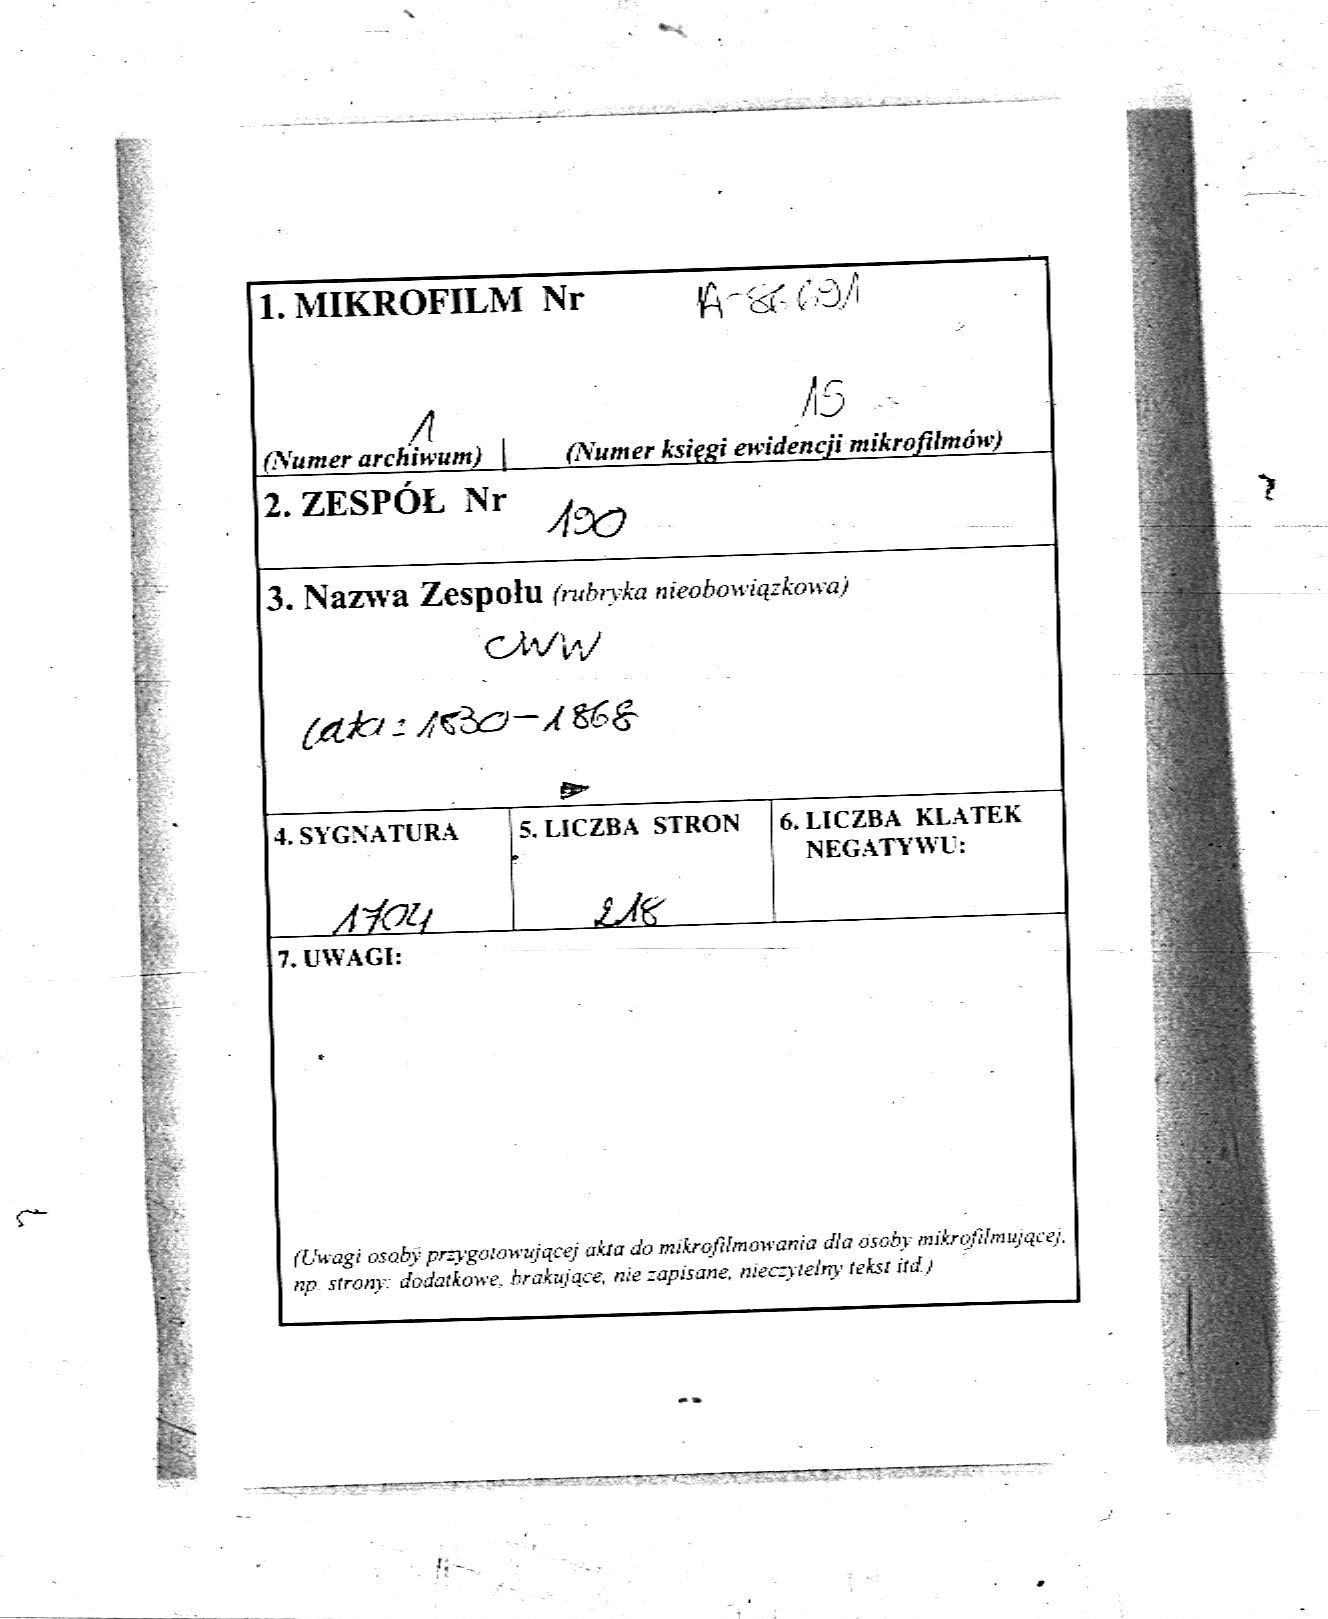 1. MIKROFILM Nr
1
15
(Numer archiwum) | (Numer księgi ewidencji mikrofilmów)
2. ZESPÓŁ Nr 190
3. Nazwa Zespołu (rubryka nieobowiązkowa)
CWW
Lata: 1830-1868
4. SYGNATURA
1704
5. LICZBA STRON
218
6. LICZBA KLATEK
NEGATYWU:
7. UWAGI:
(Uwagi osoby przygotowującej akta do mikrofilmowania dla osoby mikrofilmującej,
np. strony: dodatkowe, brakujące, nie zapisane, nieczytelny tekst itd.)